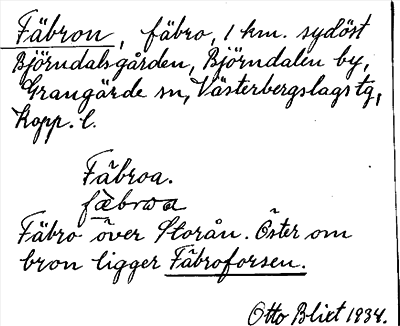 Fäbron, fäbro, 1 km. sydöst
Björndalsgården, Björndalen by,
Grangärde sn, Västerbergslags tg,
Kopp. l.
Fäbroa.
fäbroa
Fäbro över Storån. Öster om
bron ligger Fäbroforsen.
Otto Blixt 1934.